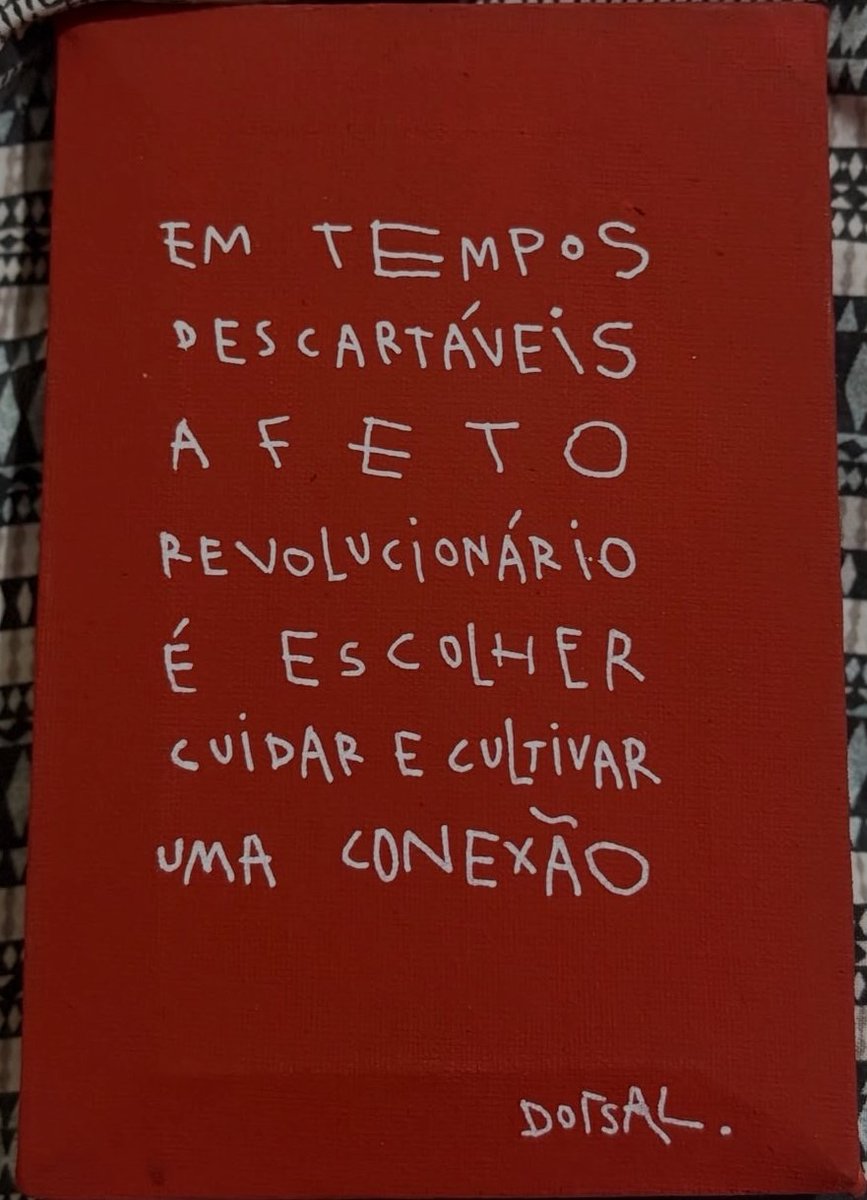 EM TEMPOS
DESCARTÁVEIS
AFETO
REVOLUCIONÁRIO
É ESCOLHER
CUIDAR E CULTIVAR
UMA CONEXÃO
DORSAL.